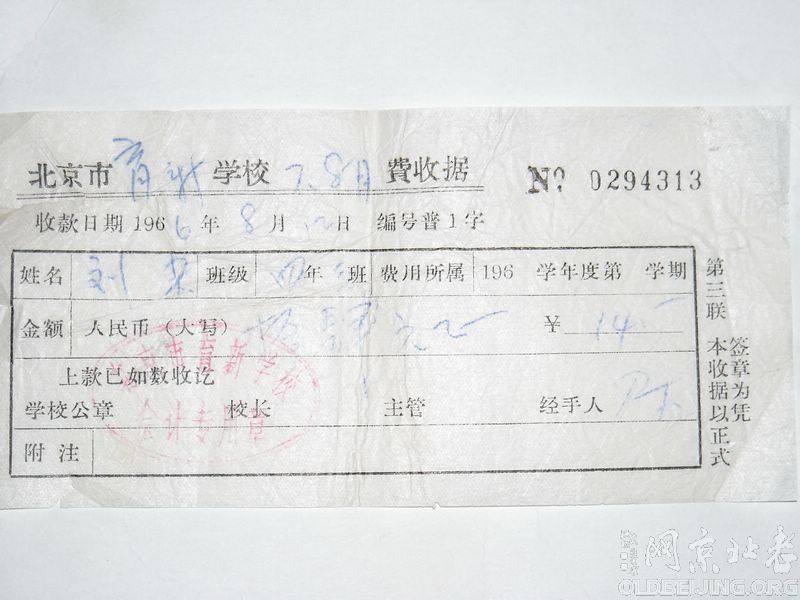 北京市育新学校 7.8月 費收据 Nº 0294313
收款日期 1966年8月12日 编号普1字
姓名 刘 班级 四年 班 费用所属 196 学年度第 学期
金额 人民币（大写） 拾肆元正 ¥ 14.-
上款已如数收讫
学校公章 校长 主管 经手人
附注
北京市育新学校
会计专用章
第三联 本收据以正式
签章为凭
老北京网
OLDBEIJING.ORG